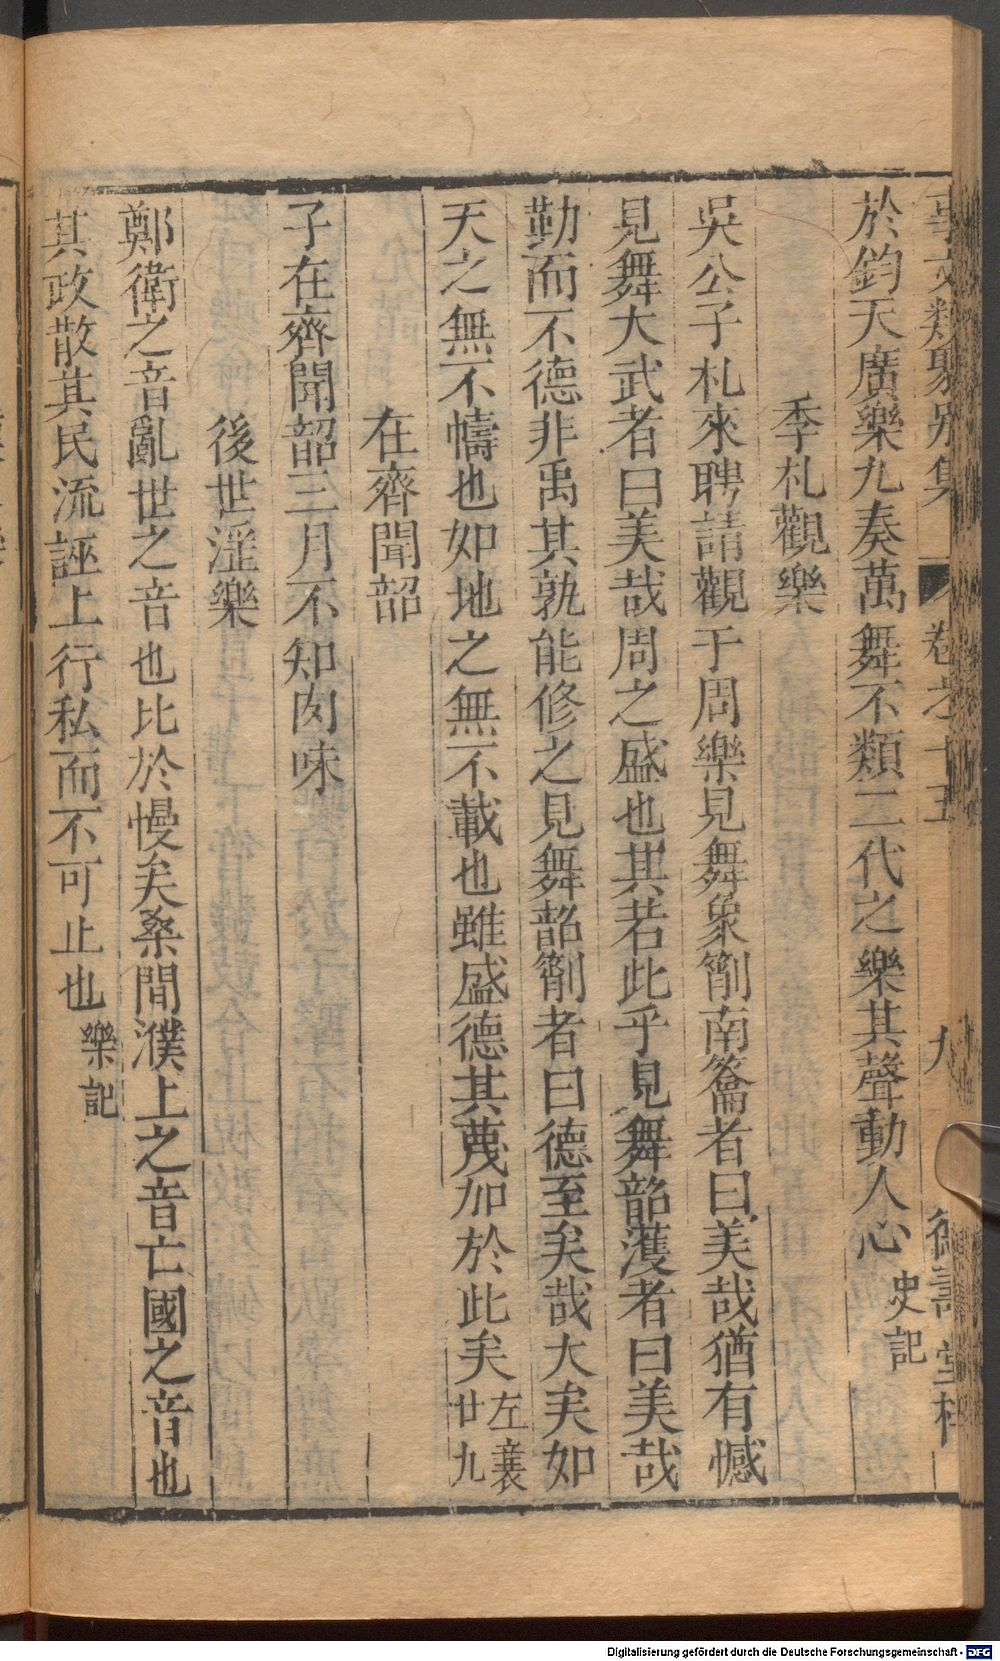 事文類聚別集 卷之十五 九 德壽堂梓
於鈞天廣樂九奏萬舞不類二代之樂其聲動人心史記
季札觀樂
吳公子札來聘請觀于周樂見舞象箾南籥者曰美哉猶有憾
見舞大武者曰美哉周之盛也其若此乎見舞韶濩者曰美哉
勤而不德非禹其孰能修之見舞韶箾者曰德至矣哉大矣如
天之無不幬也如地之無不載也雖盛德其蔑加於此矣左襄廿九
在齊聞韶
子在齊聞韶三月不知肉味
後世淫樂
鄭衛之音亂世之音也比於慢矣桑間濮上之音亡國之音也
其政散其民流誣上行私而不可止也樂記
Digitalisierung gefördert durch die Deutsche Forschungsgemeinschaft - DFG